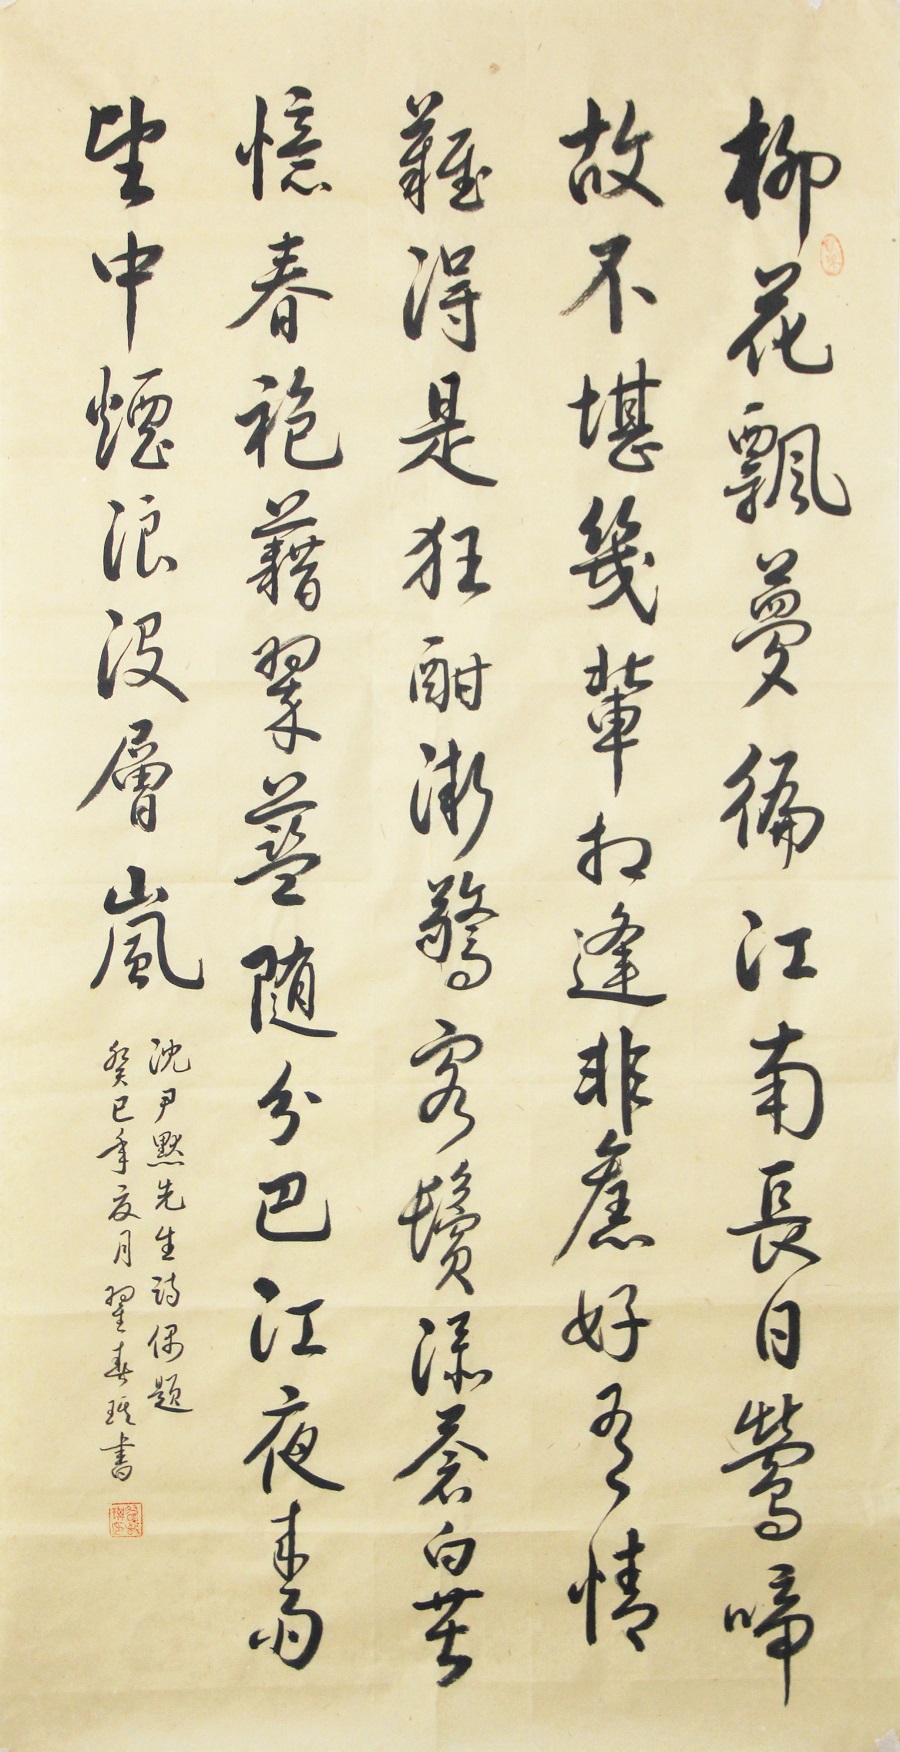 柳花飄夢徧江南長日鶯啼
故不堪幾輩相逢非舊好有情
難得是狂酣漸驚客鬢添蒼白苦
憶春袍藉翠藍隨分巴江夜來雨
望中煙浪沒層嵐
沈尹默先生詩偶題
癸巳年夏月翟春瑛書